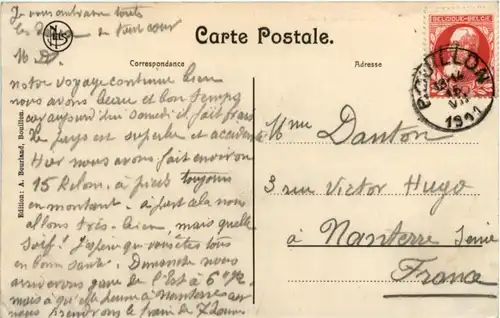 Je vous embrasse touts
les de tout cœur
M D.
NELS
Carte Postale.
Correspondance
Adresse
BELGIQUE-BELGIË
BOUILLON
1911
Edition: A. Bourland, Bouillon.
notre voyage continue bien
nous avons beau et bon temps
car aujourd'hui samedi il fait frais
le pays est superbe et
Hier nous avons fait environ
15 Kilom. à pieds toujours
en montant. à part cela nous
allons très-bien, mais quelle
soif! J'espère que vous êtes tous
en bonne santé. Dimanche nous
arriverons gare de l'Est à 6 h ½
mais à qu'elle heure à Nanterre
nous prendrons le train de 7 heures
Mme Danton
3 rue Victor Hugo
à Nanterre Seine
France